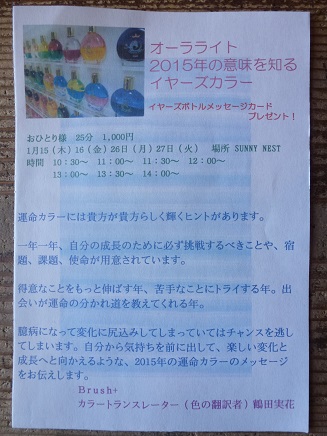 オーラライト
2015年の意味を知る
イヤーズカラー
イヤーズボトルメッセージカード
プレゼント！
おひとり様 25分 1,000円
1月15(木)16(金)26日(月)27日(火) 場所 SUNNY NEST
時間 10:30～ 11:00～ 11:30～ 12:00～
13:00～ 13:30～ 14:00～
運命カラーには貴方が貴方らしく輝くヒントがあります。
一年一年、自分の成長のために必ず挑戦するべきことや、宿
題、課題、使命が用意されています。
得意なことをもっと伸ばす年、苦手なことにトライする年。出
会いが運命の分かれ道を教えてくれる年。
臆病になって変化に尻込みしてしまっていてはチャンスを逃し
てしまいます。自分から気持ちを前に出して、楽しい変化と
成長へと向かえるような、2015年の運命カラーのメッセージ
をお伝えします。
Brush+
カラートランスレーター(色の翻訳者)鶴田実花